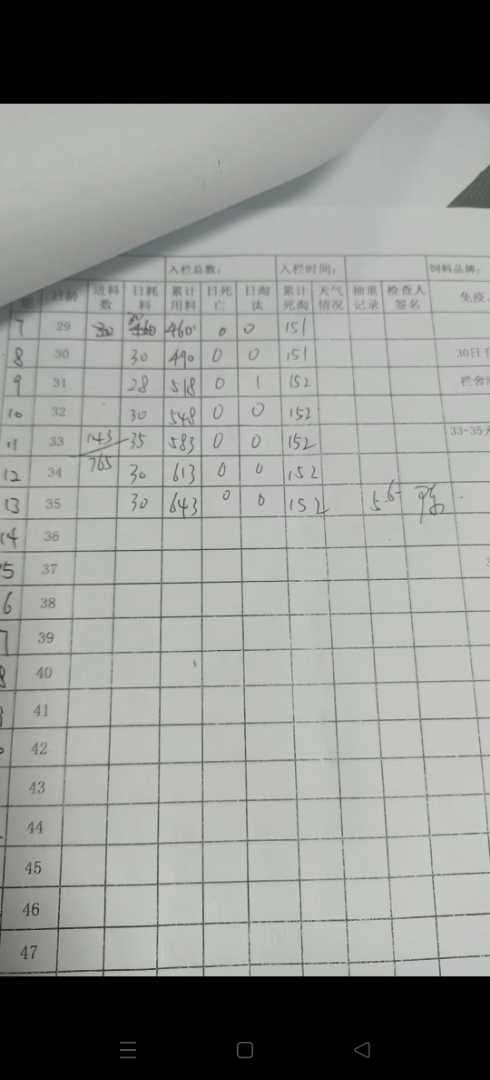 入栏总数： 入栏时间： 饲料品牌：
日龄 进料数 日耗料 累计用料 日死亡 日淘汰 累计死淘 天气情况 抽重记录 检查人签名 免疫
7 29 460 0 0 151
8 30 30 490 0 0 151 30日
9 31 28 518 0 1 152 栏舍
10 32 30 548 0 0 152
11 33 143 35 583 0 0 152 33-35
12 34 765 30 613 0 0 152
13 35 30 643 0 0 152 5.6
14 36
5 37
6 38
7 39
8 40
41
42
43
44
45
46
47